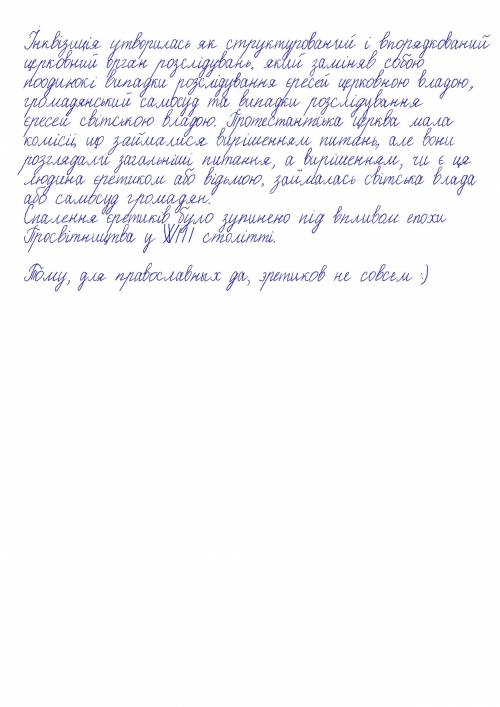 Інквізиція утворилась як структурований і впорядкований
церковний орган розслідувань, який заміняв собою
поодинокі випадки розслідування єресей церковною владою,
громадянський самосуд та випадки розслідування
єресей світською владою. Протестантська церква мала
комісії, що займалися вирішенням питань, але вони
розглядали загальніші питання, а вирішенням, чи є ця
людина єретиком або відьмою, займалась світська влада
або самосуд громадян.
Спалення єретиків було зупинено під впливом епохи
Просвітництва у XVIII столітті.
Тому, для православных да, эретиков не совсем :)